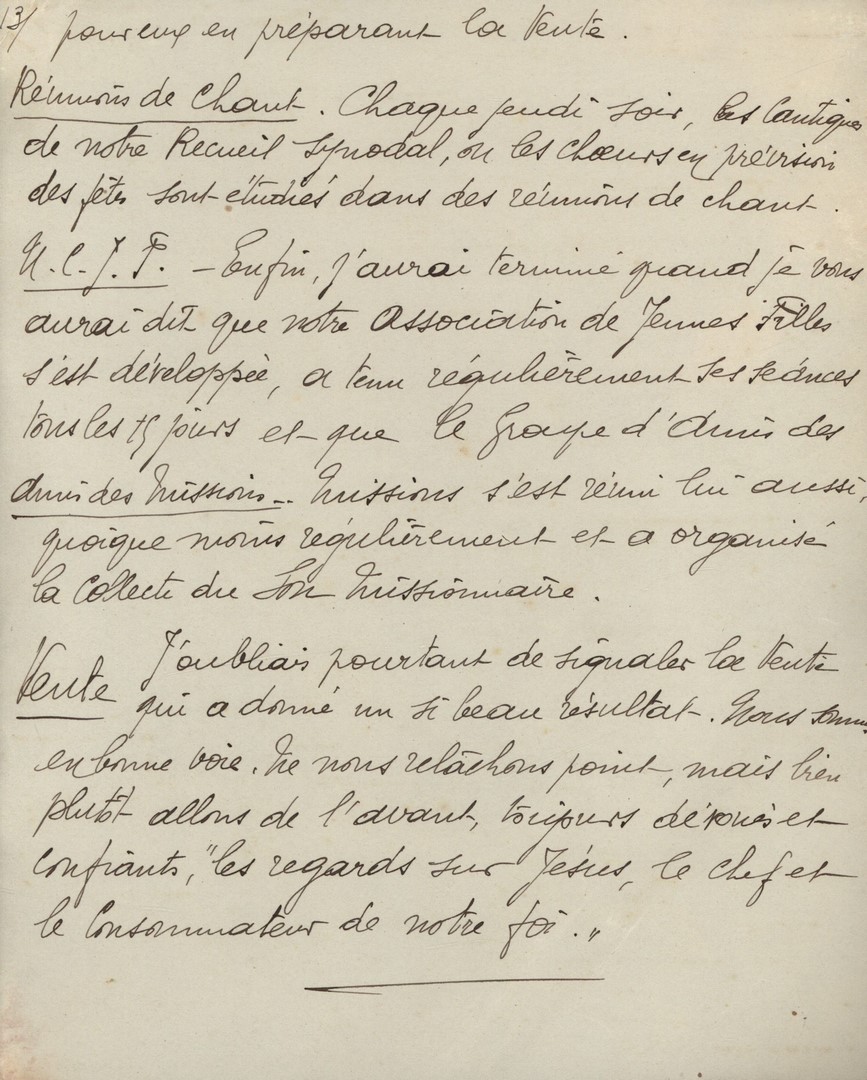 13/ pour eux en préparant la Vente.
Réunions de Chant. Chaque jeudi soir, les Cantiques
de notre Recueil Synodal, ou les chœurs en prévision
des fêtes sont étudiés dans des réunions de chant.
U.C.J.F. – Enfin, j'aurai terminé quand je vous
aurai dit que notre Association de Jeunes Filles
s'est développée, a tenu régulièrement ses séances
tous les 15 jours et que le Groupe d'Amis des
Amis des Missions.. Missions s'est réuni lui aussi,
quoique moins régulièrement et a organisé
la Collecte du Sou Missionnaire.
Vente J'oubliais pourtant de signaler la Vente
qui a donné un si beau résultat. Nous sommes
en bonne voie. Ne nous relâchons point, mais bien
plutôt allons de l'avant, toujours dévoués et
confiants, "les regards sur Jésus, le chef et
le Consommateur de notre foi."